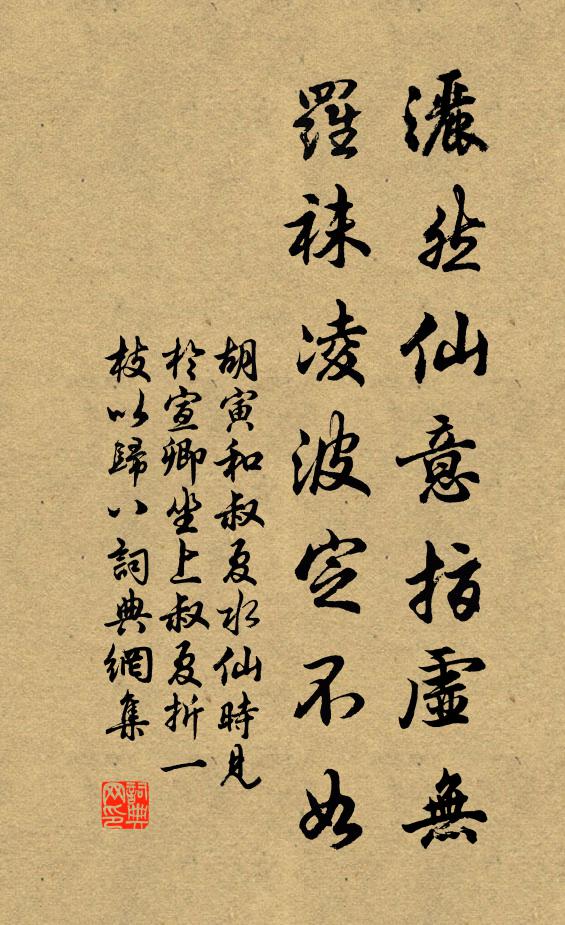 灑然仙意指虛無
羅袜凌波定不如
胡寅和叔夏水仙時見
於宣卿坐上叔夏折一
枝以歸八詞典網集
詞典
网印